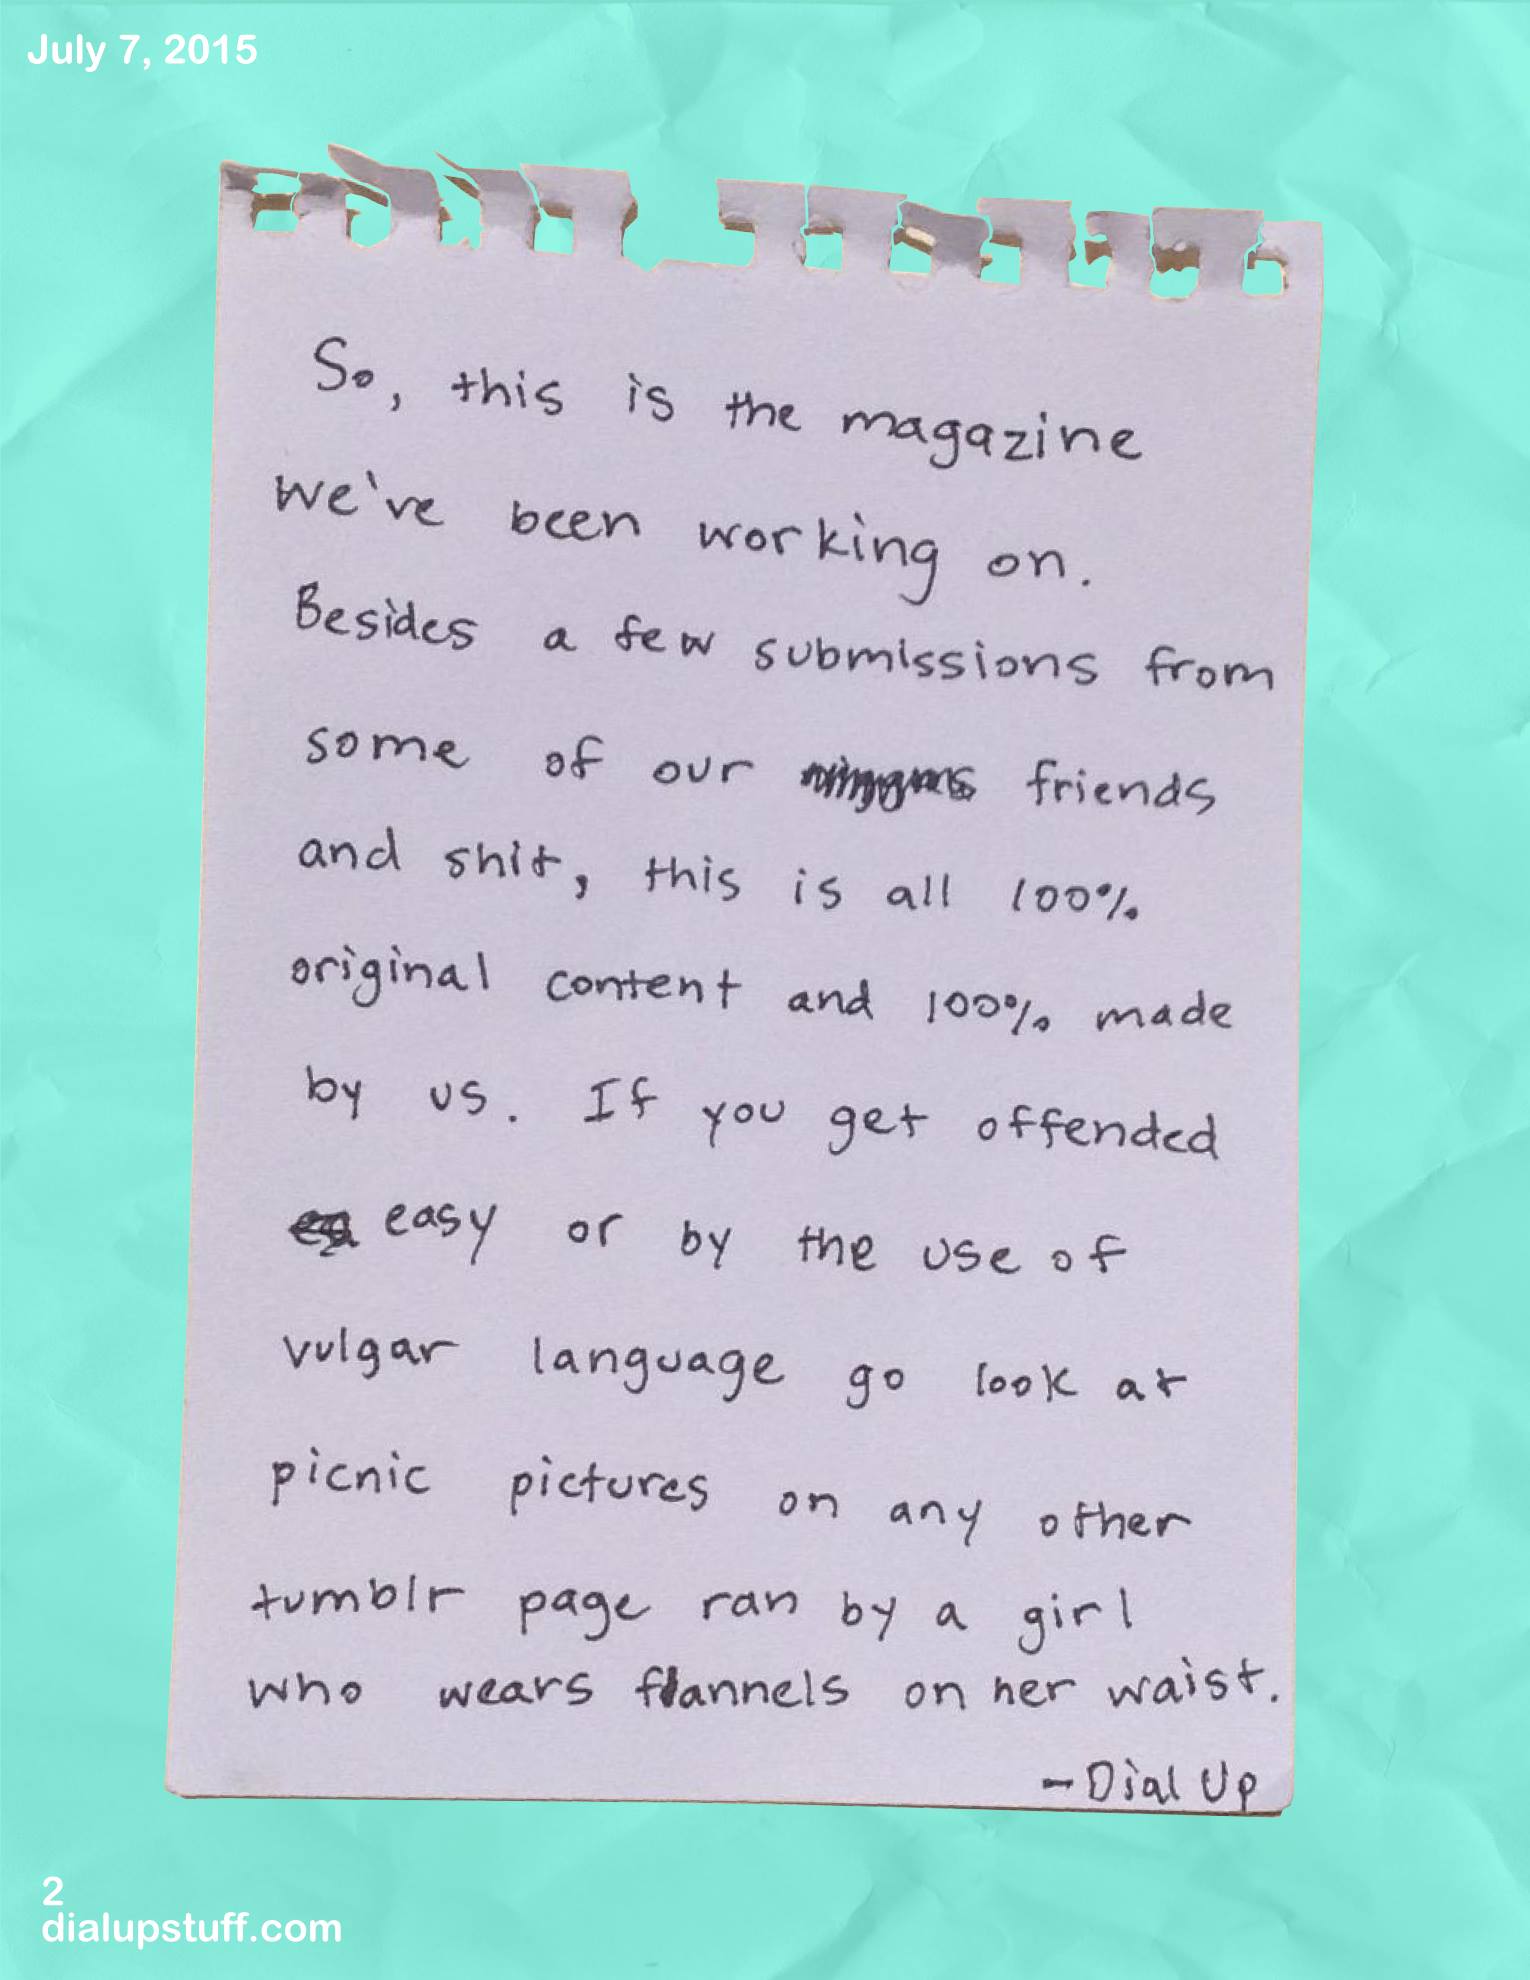 July 7, 2015
So, this is the magazine
we've been working on.
Besides a few submissions from
some of our friends
and shit, this is all 100%
original content and 100% made
by us. If you get offended
easy or by the use of
vulgar language go look at
picnic pictures on any other
tumblr page ran by a girl
who wears flannels on her waist.
-Dial Up
2
dialupstuff.com